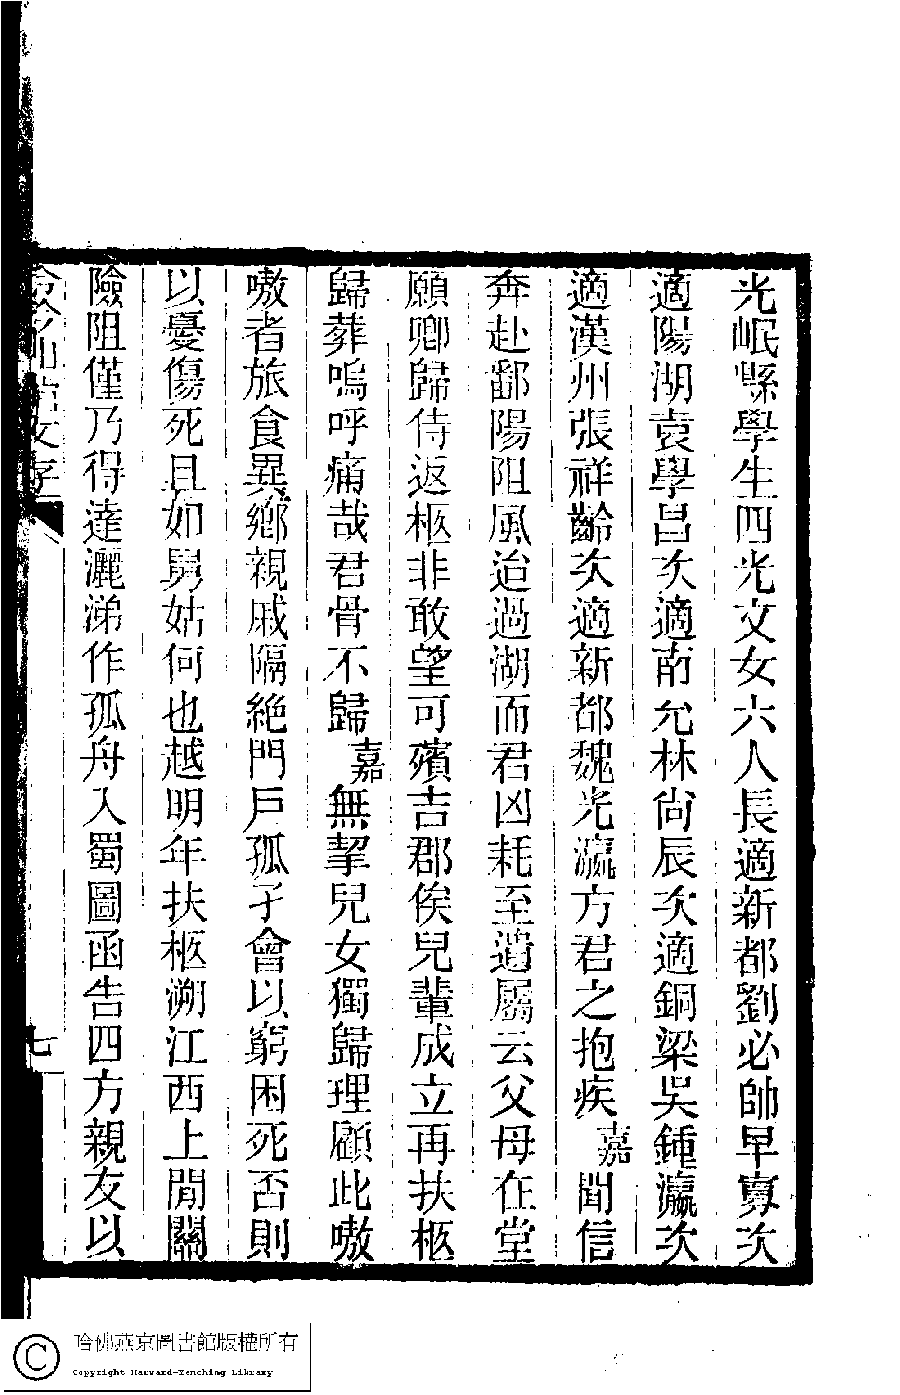 光岷縣學生四光文女六人長適新都劉必帥早寡次
適陽湖袁學昌次適南充林尙辰次適銅梁吳鍾瀛次
適漢州張祥齡次適新都魏光瀛方君之抱疾嘉聞信
奔赴鄱陽阻風迨過湖而君凶耗至遺屬云父母在堂
願卿歸侍返柩非敢望可殯吉郡俟兒輩成立再扶柩
歸葬嗚呼痛哉君骨不歸嘉無挈兒女獨歸理顧此嗷
嗷者旅食異鄉親戚隔絶門戶孤孑會以窮困死否則
以憂傷死且如舅姑何也越明年扶柩溯江西上閒關
險阻僅乃得達灑涕作孤舟入蜀圖函告四方親友以
文存
七
哈佛燕京圖書館版權所有
Copyright Harvard-Yenching Library